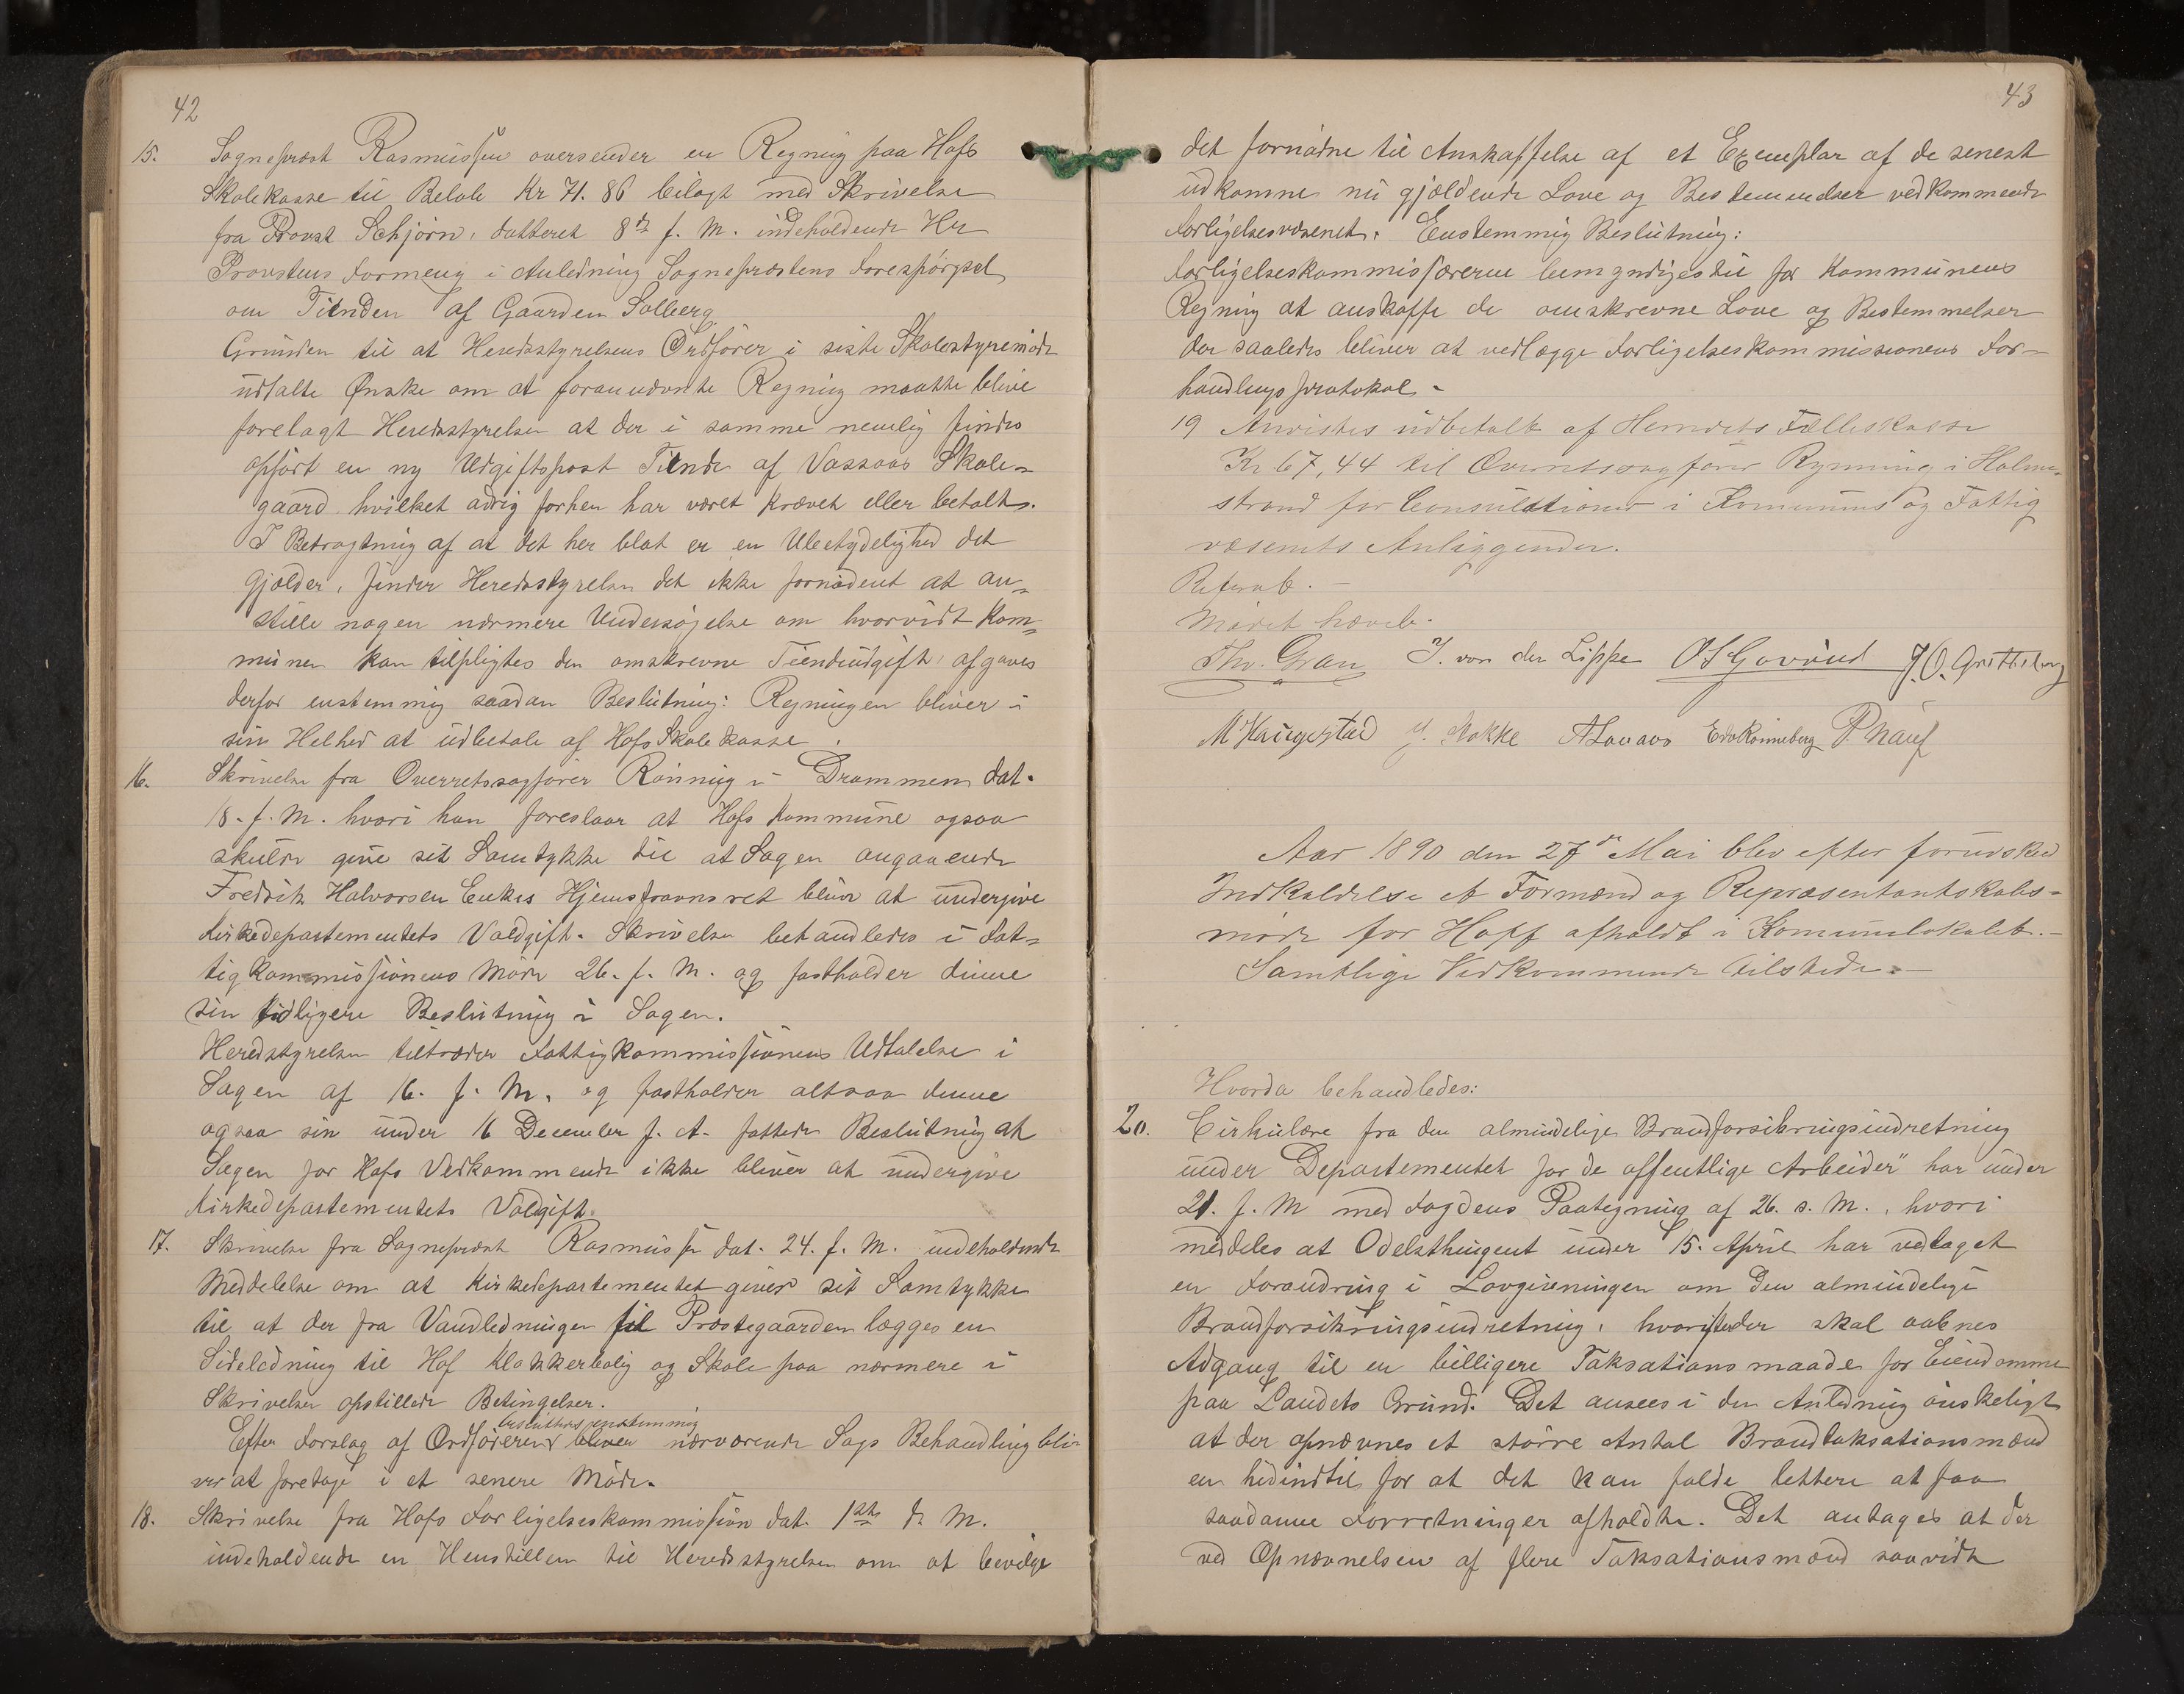 42
15. Sognepræst Rasmussen oversender en Regning paa Hofs
Skolekasse til Beløb Kr 71.86 bilagt med Skrivelse
fra Provst Schjørn, datteret 8de f. M. indeholdende Hr
Provstens Formeng i Anledning Sognepræstens Forespørgsel
om Tienden af Gaarden Solberg.
Grunden til at Heredsstyrelsens Ordfører i siste Skolestyremøde
udtalte Ønske om at forannævnte Regning maatte blive
forelagt Heredsstyrelsen at der i samme nemlig findes
opført en ny Udgiftspost Tiende af Vassaas Skole=
gaard hvilket aldrig forhen har været krævet eller betalt.
I Betragtning af at det her blot er en Ubetydelighed det
gjælder, finder Heredsstyrelsen det ikke fornødent at an=
stille nogen nærmere Undersøgelse om hvorvidt Kom=
munen kan tilpligtes den omskrevne Tiendeudgift, afgaves
derfor enstemmig saadan Beslutning: Regningen bliver i
sin Helhed at udbetale af Hofs Skolekasse.
16. Skrivelse fra Overretssagfører Rønning i Drammen dat.
18. f. M. hvori han foreslaar at Hofs Kommune ogsaa
skulde give sit Samtykke til at Sagen angaaende
Fredrik Halvorsen Enkes Hjemstavnsret bliver at undergive
Kirkedepartementets Voldgift. Skrivelsen behandledes i Fat=
tigkommissionens Møde 26. f. M. og fastholder denne
sin tidligere Beslutning i Sagen.
Heredstyrelsen tiltræder Fattigkommissionens Udtalelse i
Sagen af 16. f. M. og fastholder altsaa denne
ogsaa sin under 16 December f. A. fattede Beslutning at
Sagen for Hofs Vedkommende ikke bliver at undergive
Kirkedepartementets Voldgift.
17. Skrivelse fra Sognepræst Rasmussen dat. 24. f. M. indeholdende
Meddelelse om at Kirkedepartementet giver sit Samtykke
til at der fra Vandledningen til Præstegaarden lægges en
Sideledning til Hof Klokkerbolig og Skole paa nærmere i
Skrivelsen opstillede Betingelser.
besluttes enstemmig
Efter Forslag af Ordføreren bliver nærværende Sags Behandling bli-
ver at foretage i et senere Møde.
18. Skrivelse fra Hofs Forligelseskommission dat. 1ste d. M.
indeholdende en Henstillen til Heredsstyrelsen om at bevilge
43
det fornødne til Anskaffelse af et Exemplar af de senest
udkomne nu gjældende Love og Bestemmelser vedkommende
Forligelsesvæsenet. Enstemmig Beslutning:
Forligelseskommissærerne bemyndiges til for Kommunens
Regning at anskaffe de omskrevne Love og Bestemmelser
der saaledes bliver at vedlægge Forligelseskommissionens For=
handlingsprotokol.
19 Anvistes udbetalt af Herredets Fælleskasse
Kr 67,44 til Overretssagfører Rynning i Holme-
strand for Consultationer i Kommunens og Fattig
væsenets Anliggender.
Referat.
Mødet hævet.
Thv. Gran J. von der Lippe O S Gorrud J. O. Grettebng
M Haugestad J. Stokke A Lavaas Edv Rønneberg P. Nauf
Aar 1890 den 27de Mai blev efter forudsked
Indkaldelse et Formænd og Repræsentantskabs-
møde for Hoff afholdt i Komunelokalet.
Samtlige Vedkommende tilstede.
Hvorda behandledes:
20. Cirkulære fra den almindelige Brandforsikringsindretning
under Departementet for de offentlige Arbeider" har under
21. f. M med Fogdens Paategning af 26. s. M., hvori
meddeles at Odelsthinget under 15. April har vedtaget
en Forandring i Lovgivningen om Den almindelige
Brandforsikringsindretning, hvorefter der skal aabnes
Adgang til en billigere Taksationsmaade for Eiendomme
paa Landets Grund. Det ansees i den Anledning ønskeligt
at der opnævnes et større Antal Brandtaksationsmænd
en hidindtil for at det kan falde lettere at faa
saadanne Forretninger afholdte. Det antages at der
ved Opnævnelsen af flere Taksationsmænd saavidt